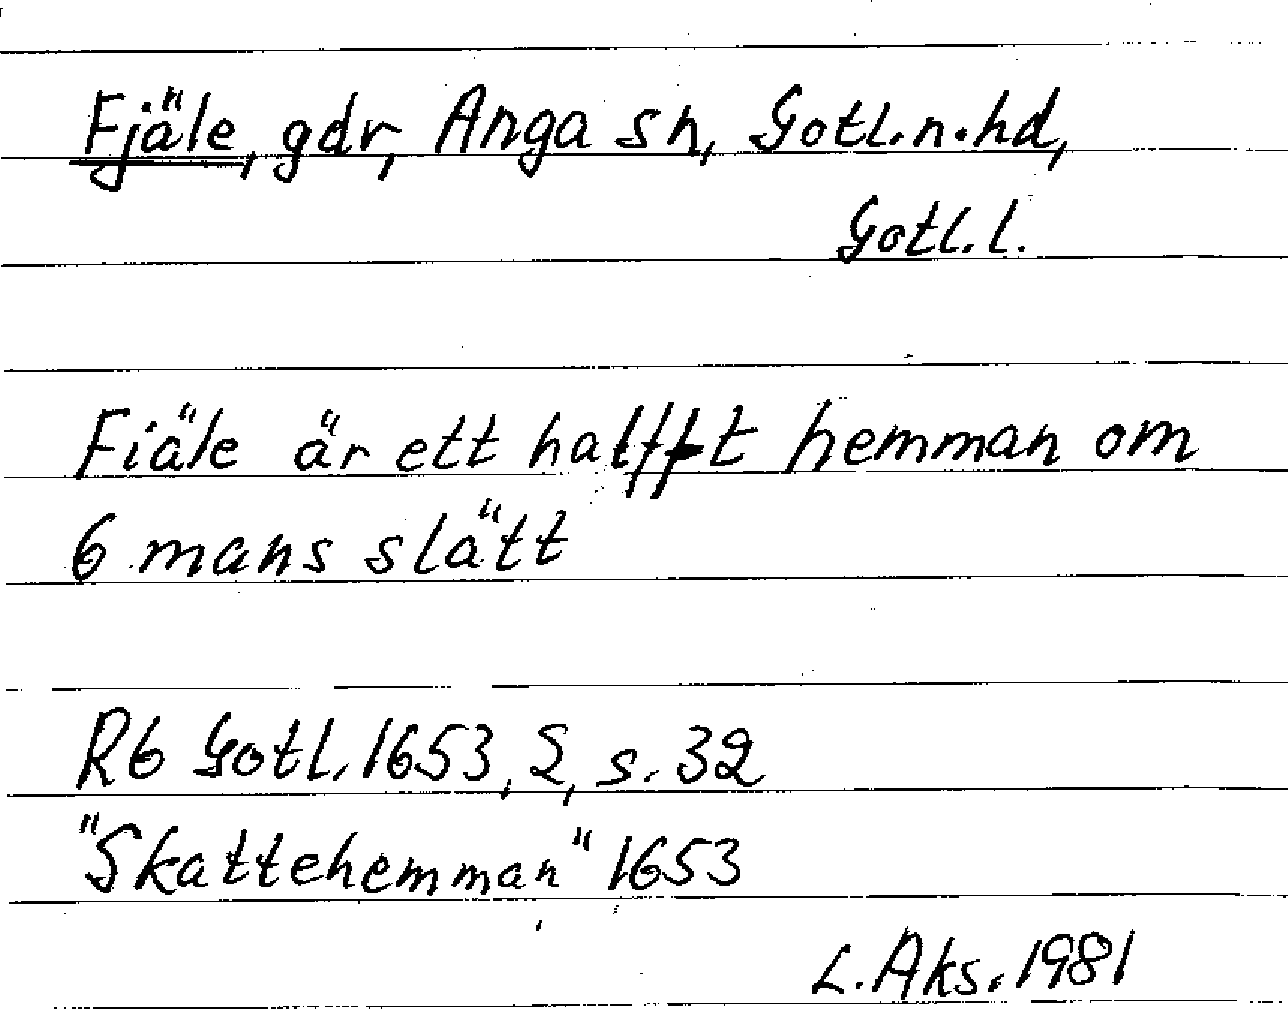 Fjäle, gdr, Anga sn, Gotl.n.hd,
Gotl.l.
Fiäle är ett halfft hemman om
6 mans slätt
Rb Gotl. 1653, 2, s. 32
"Skattehemman" 1653
L. Aks. 1981